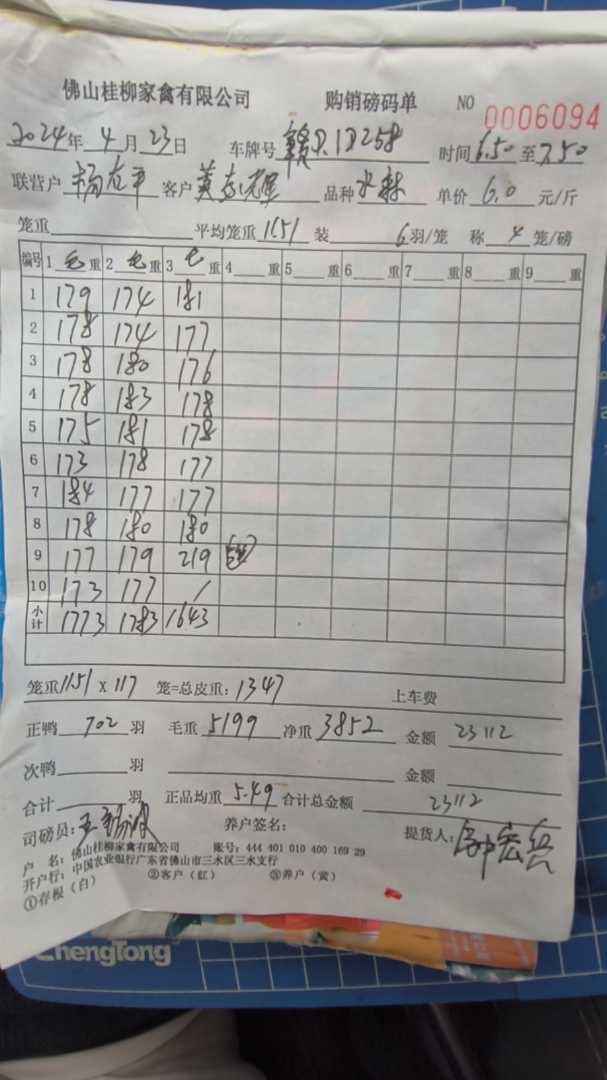 佛山桂柳家禽有限公司 购销磅码单 NO 0006094
2024年 4月 23日 车牌号 赣D.1D258 时间 6.50 至 7.50
联营户 客户 黄 品种 水 单价 6.0 元/斤
笼重 平均笼重 11.51 装 6 羽/笼 称 4 笼/磅
编号 1 毛 重 2 毛 重 3 毛 重 4 重 5 重 6 重 7 重 8 重 9 重
1 179 174 181
2 178 174 177
3 178 180 176
4 178 183 178
5 175 181 178
6 173 178 177
7 184 177 177
8 178 180 180
9 177 179 219
10 173 177 /
小计 1773 1783 1643
笼重 11.51 x 117 笼=总皮重: 1347 上车费
正鸭 702 羽 毛重 5199 净重 3852 金额 23112
次鸭 羽 金额
合计 羽 正品均重 5.49 合计总金额 23112
司磅员: 王 养户签名: 提货人:
户 名: 佛山桂柳家禽有限公司 账号: 444 401 010 400 169 29
开户行: 中国农业银行广东省佛山市三水区三水支行
①存根（白） ②客户（红） ③养户（黄）
ChengTong